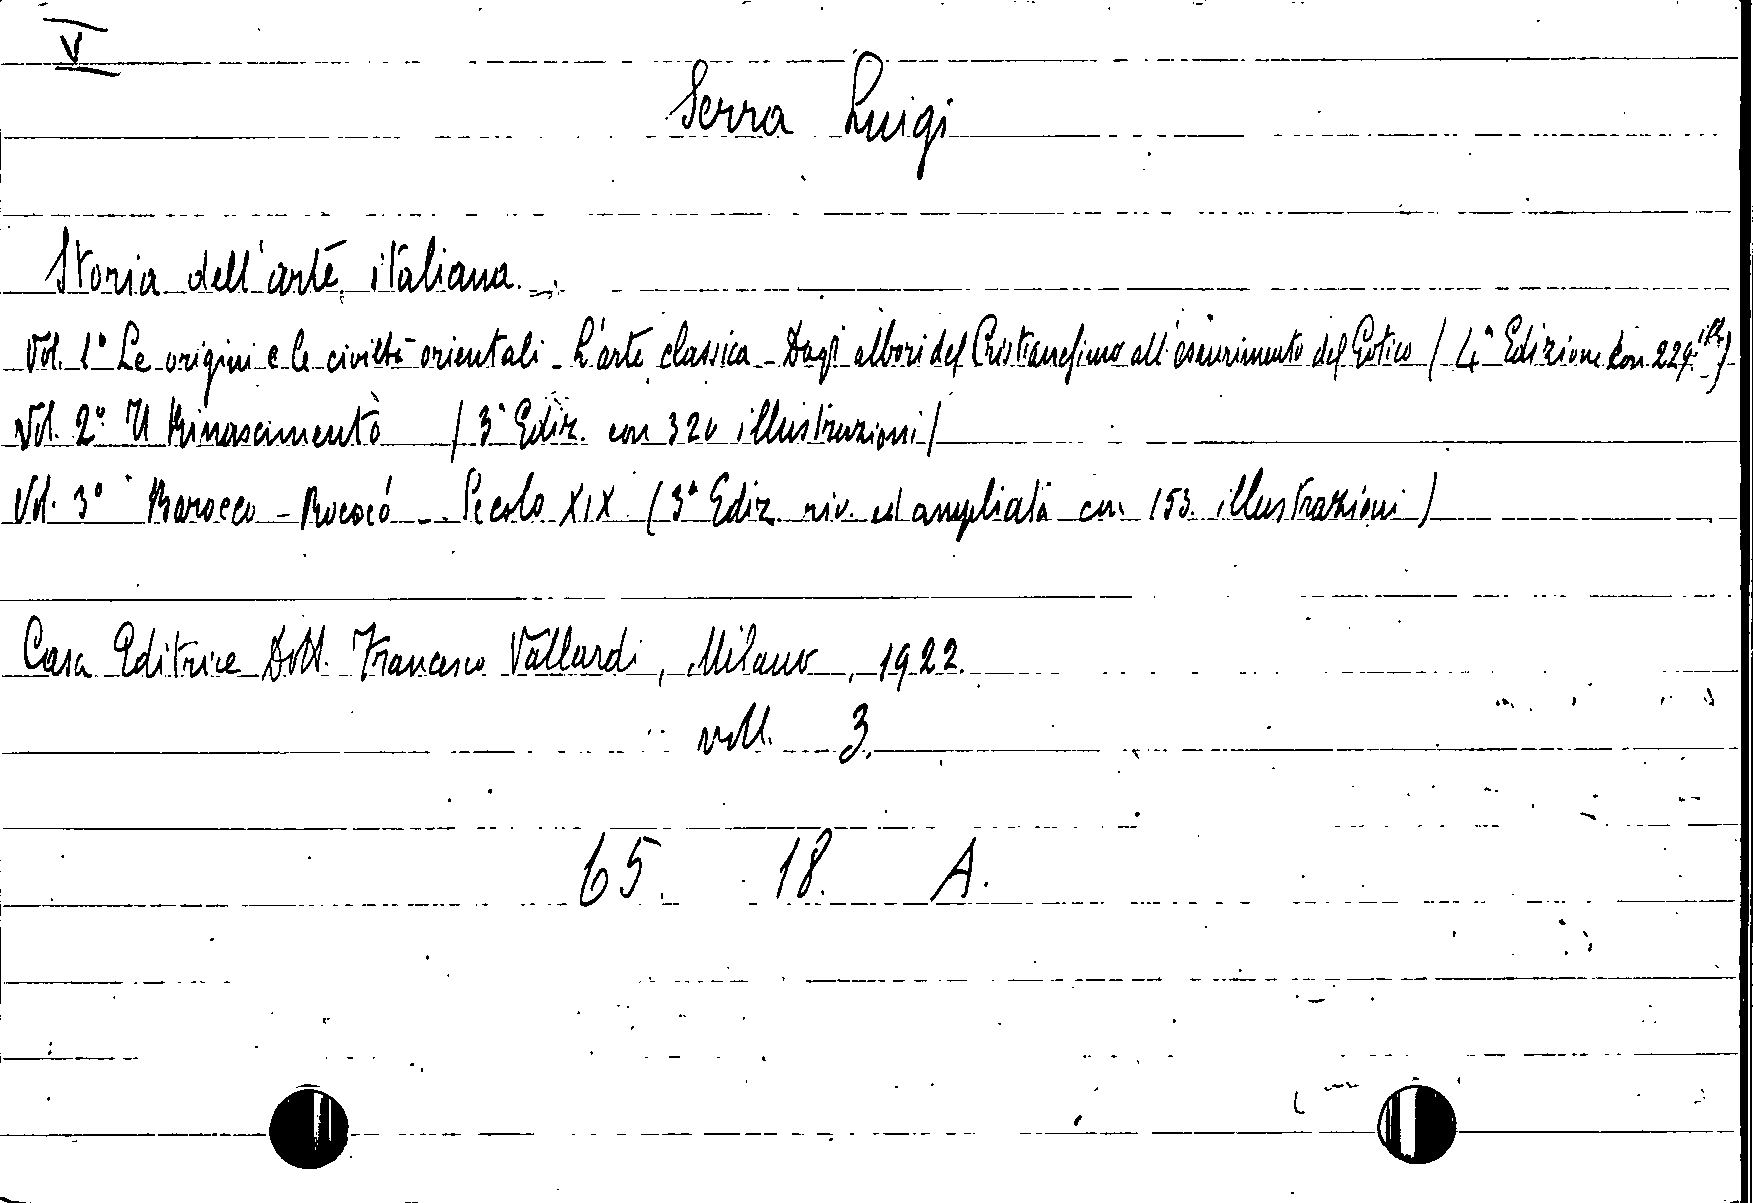 V
Serra Luigi
Storia dell'arte italiana.
Vol. 1° Le origini e le civiltà orientali - L'arte classica - Dagl' albori del Cristianesimo all'esaurimento del Gotico (4ª Edizione con 229 ill.)
Vol. 2° Il Rinascimento (3ª Ediz. con 320 illustrazioni)
Vol. 3° Barocco - Rococó - Secolo XIX (3ª Ediz. riv. ed ampliata con 153 illustrazioni)
Casa Editrice Dott. Francesco Vallardi, Milano, 1922.
voll. 3.
65. 18. A.